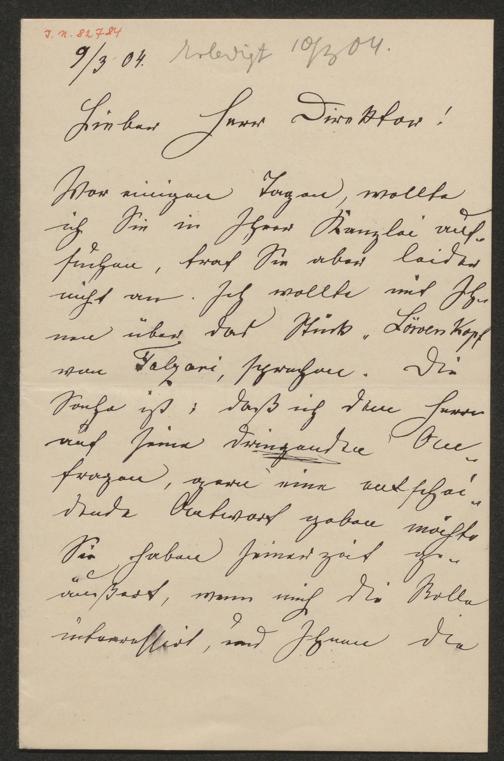 J. N. 82784
9/3 04. Erledigt 10/3 04.
Lieber Herr Direktor!
Vor einigen Tagen, wollte
ich Sie in Ihrer Kanzlei auf-
suchen, traf Sie aber leider
nicht an. Ich wollte mit Ih-
nen über das Stück „Löwenkopf
von sprechen. Die
Sache ist: daß ich dem Herrn
auf seine dringenden An-
fragen, gern eine entschei-
dende Antwort geben möchte
Sie haben seinerzeit ge-
äußert, wenn mich die Rolle
interessirt, und Ihnen die